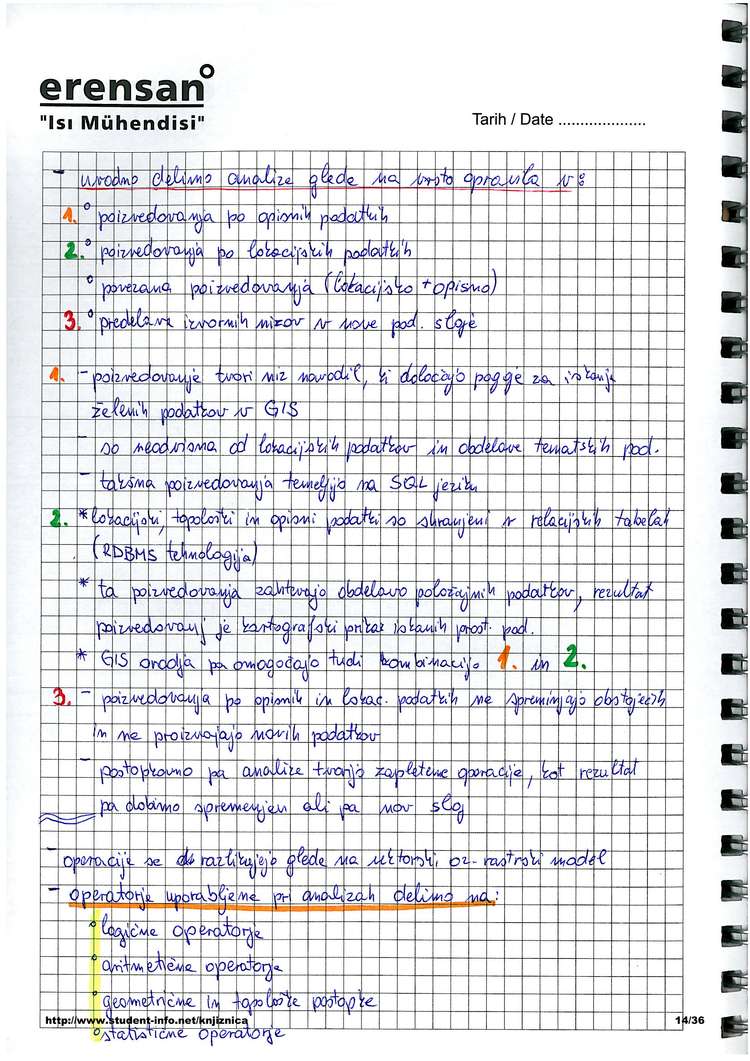 erensan
"Isı Mühendisi"
Tarih / Date ....................
- uvodno delimo analize glede na vrsto opravila v:
1. ° poizvedovanja po opisnih podatkih
2. ° poizvedovanja po lokacijskih podatkih
° povezana poizvedovanja (lokacijsko + opisno)
3. ° predelava izvornih nizov v nove pod. sloje
1. - poizvedovanje tvori niz navodil, ki določajo pogoje za iskanje
želenih podatkov v GIS
- so neodvisna od lokacijskih podatkov in obdelave tematskih pod.
- takšna poizvedovanja temeljijo na SQL jeziku
2. * lokacijski, topološki in opisni podatki so shranjeni v relacijskih tabelah
(RDBMS tehnologija)
* ta poizvedovanja zahtevajo obdelavo položajnih podatkov, rezultat
poizvedovanj je kartografski prikaz iskanih prost. pod.
* GIS orodja pa omogočajo tudi kombinacijo 1. in 2.
3. - poizvedovanja po opisnih in lokac. podatkih ne spreminjajo obstoječih
in ne proizvajajo novih podatkov
- postopkovno pa analize tvorijo zapletene operacije, kot rezultat
pa dobimo spremenjen ali pa nov sloj
- operacije se razlikujejo glede na vektorski, oz. rastrski model
- operatorje uporabljene pri analizah delimo na:
° logične operatorje
° aritmetične operatorje
° geometrične in topološke postopke
http://www.student-info.net/knjiznica
14/36
° statistične operatorje